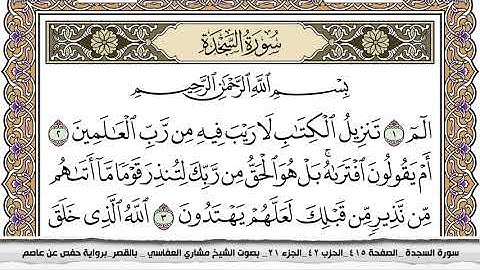 سُورَةُ السَّجْدَةِ
بِسْمِ اللَّهِ الرَّحْمَٰنِ الرَّحِيمِ
الٓمٓ ١ تَنزِيلُ ٱلْكِتَٰبِ لَا رَيْبَ فِيهِ مِن رَّبِّ ٱلْعَٰلَمِينَ ٢
أَمْ يَقُولُونَ ٱفْتَرَىٰهُ ۚ بَلْ هُوَ ٱلْحَقُّ مِن رَّبِّكَ لِتُنذِرَ قَوْمًا مَّآ أَتَىٰهُم
مِّن نَّذِيرٍ مِّن قَبْلِكَ لَعَلَّهُمْ يَهْتَدُونَ ٣ ٱللَّهُ ٱلَّذِى خَلَقَ
سورة السجدة _ الصفحة ٤١٥ _ الحزب ٤٢ _ الجزء ٢١ _ بصوت الشيخ مشاري العفاسي _ بالقصر _ برواية حفص عن عاصم